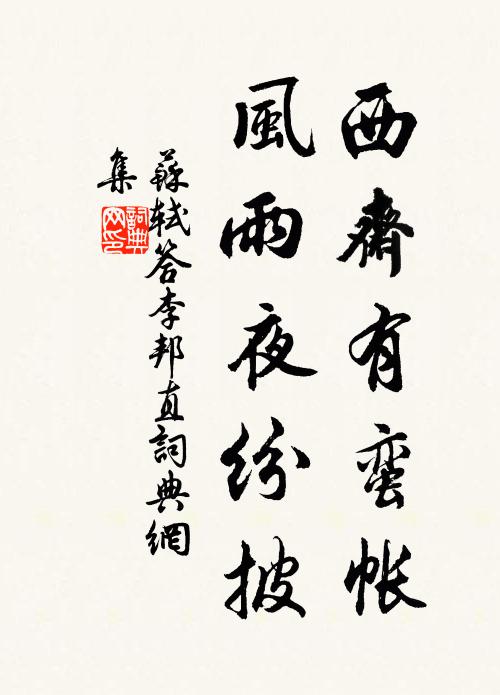 西齋有蛮帐
風雨夜紛披
蘇軾答李邦直詞典網
集
詞典
网印